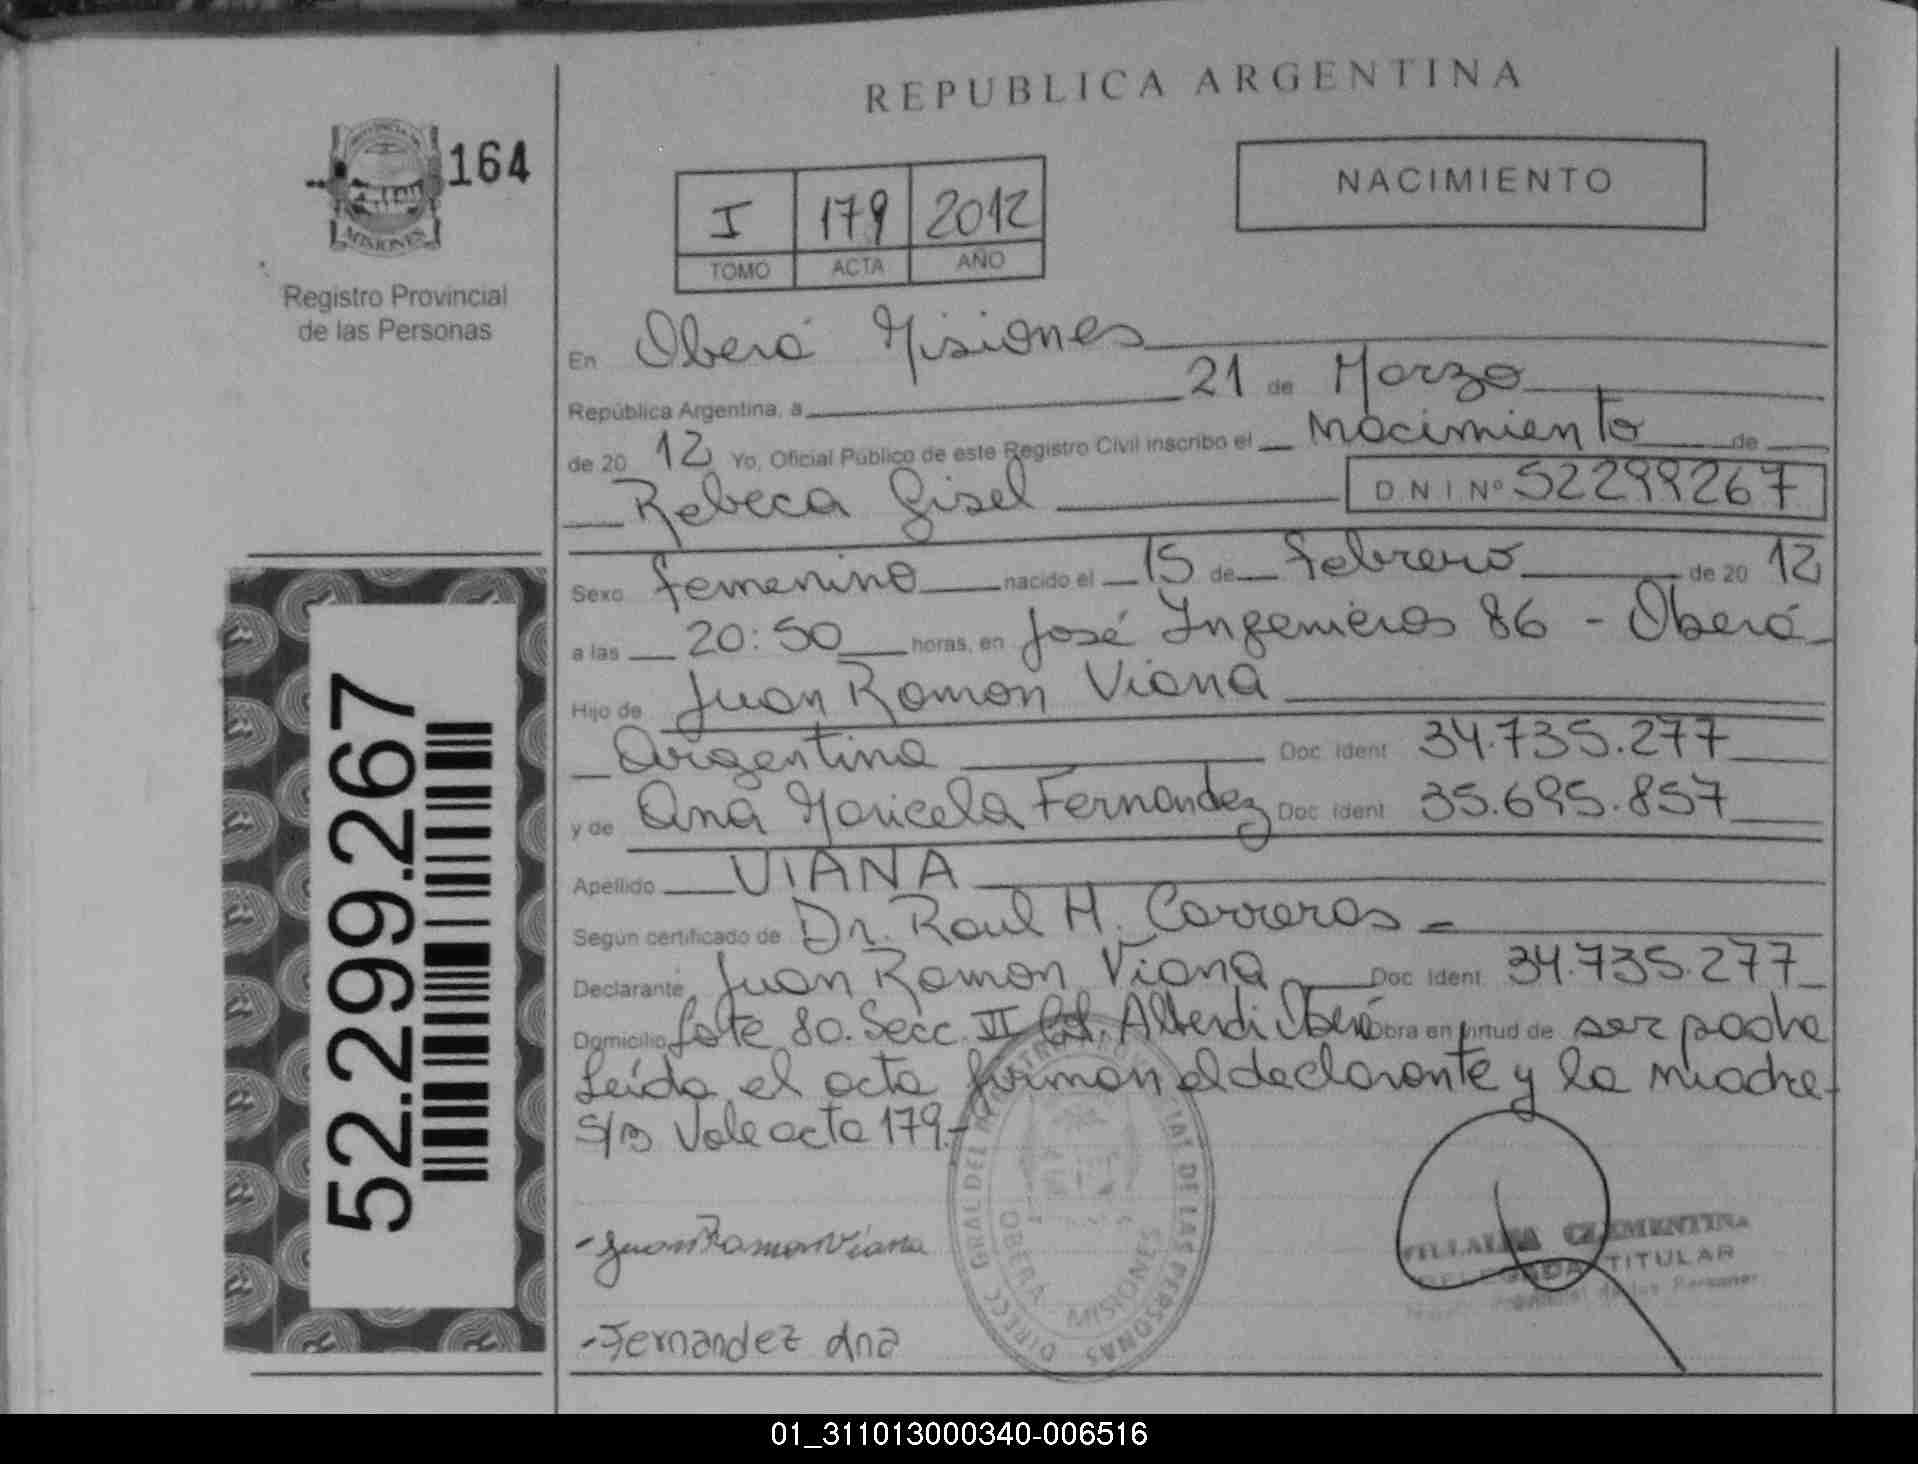 REPUBLICA ARGENTINA
164
NACIMIENTO
I 179 2012
TOMO ACTA AÑO
MISIONES
Registro Provincial
de las Personas
En Oberá Misiones
República Argentina, a 21 de Marzo
de 20 12 Yo, Oficial Público de este Registro Civil inscribo el Nacimiento de
Rebeca Gisel D N I Nº 52299267
Sexo femenino nacido el 15 de febrero de 20 12
a las 20:50 horas, en José Ingenieros 86 - Oberá
Hijo de Juan Ramon Viana
Argentina Doc Ident 34.735.277
y de Ana Maricela Fernandez Doc Ident 35.695.857
Apellido VIANA
Según certificado de Dr. Raul H. Carreras
Declarante Juan Ramon Viana Doc Ident 34.735.277
Domicilio Lote 80. Secc. VI Alberdi Oberá Obra en virtud de ser padre
Leída el acta firman el declarante y la madre
S/B Vale acta 179.-
-Juan Ramon Viana
-Fernandez Ana
DIRECC GRAL DEL REGISTRO PROVINCIAL DE LAS PERSONAS
OBERA MISIONES
VILLALBA CLEMENTINA
DELEGADA TITULAR
52.299.267
01_311013000340-006516